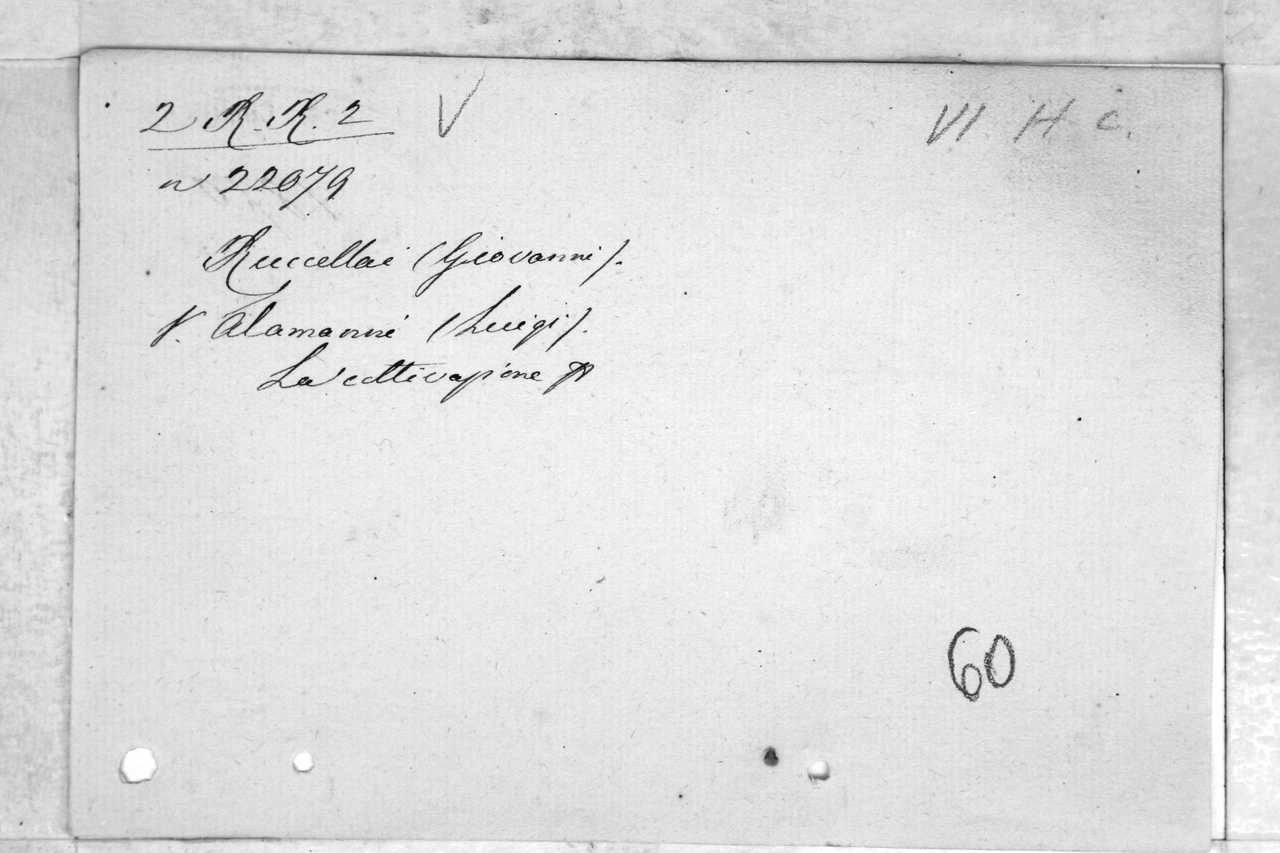 2 R. R. 2 V VI H c.
n 22079
Ruccellai (Giovanni).
V. Alamanni (Luigi).
La coltivazione
60